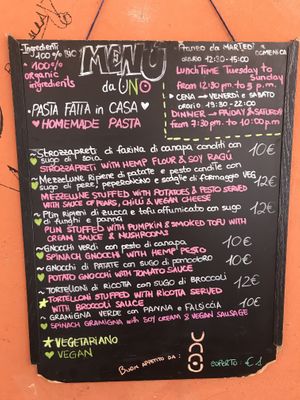 Ingredienti
100% BIO
100%
organic
ingredients
MENÙ
da UNO
Pranzo da MARTEDÌ a DOMENICA
orario 12:30 - 15:00
LUNCH TIME TUESDAY to
SUNDAY
FROM 12:30 pm to 3 p.m.
• CENA → VENERDÌ e SABATO
orario 19:30 - 22:00
DINNER → FRIDAY & SATURDAY
FROM 7:30 pm. to 10:00 p.m.
• PASTA FATTA in CASA
HOMEMADE PASTA
~ Strozzapreti di farina di canapa conditi con
sugo di soia 10€
STROZZAPRETI WITH HEMP FLOUR & SOY RAGÙ
~ Mezzelune ripiene di patate e pesto condite con
sugo di pere, peperoncino e scaglie di formaggio VEG 12€
MEZZELUNE STUFFED WITH POTATOES & PESTO SERVED
WITH SAUCE OF PEARS, CHILLI & VEGAN CHEESE
~ Plin ripieni di zucca e tofu affumicato con sugo
di funghi e panna 12€
PLIN STUFFED WITH PUMPKIN & SMOKED TOFU WITH
CREAM SAUCE & MUSHROOMS
~ GNOCCHI VERDI con pesto di canapa 10€
SPINACH GNOCCHI WITH HEMP PESTO
~ GNOCCHI DI PATATE CON SUGO DI POMODORO 10€
POTATO GNOCCHI WITH TOMATO SAUCE
~ TORTELLONI DI RICOTTA CON SUGO DI BROCCOLI 12€
TORTELLONI STUFFED WITH RICOTTA SERVED
WITH BROCCOLI SAUCE
~ GRAMIGNA VERDE CON PANNA E SALSICCIA 10€
SPINACH GRAMIGNA WITH SOY CREAM & VEGAN SAUSAGE
VEGETARIANO
VEGAN
BUON APPETITO DA:
UNO
COPERTO: € 1